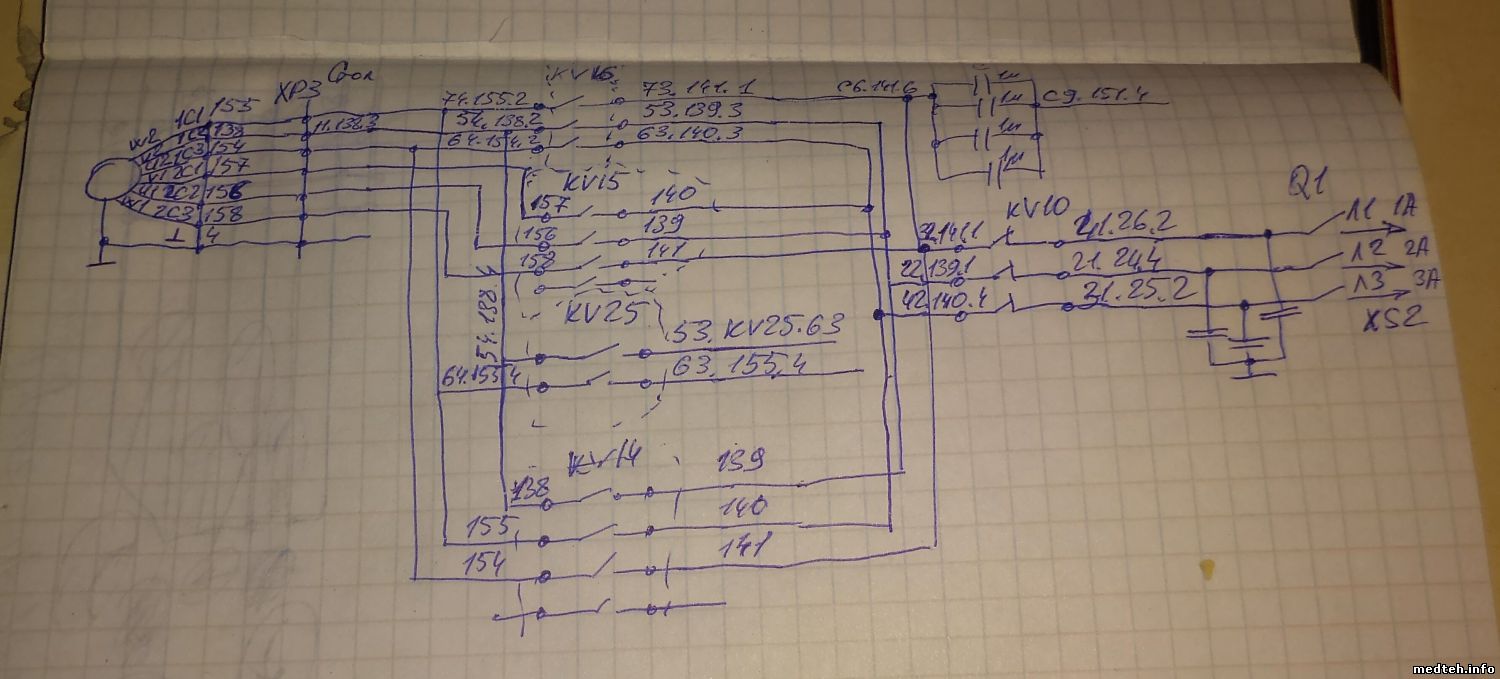 XP3 Стол
KV16
1C1 155
74.155.2
73.141.1
C6.141.6
1м
C9.151.4
W2
138
11.138.3
54.138.2
53.139.3
1м
1C3 154
64.154.2
63.140.3
1м
2C1 157
1м
2C2 156
2C3 158
⊥ 4
KV15
157
140
156
139
158
141
KV10
Q1
32.141.1
21.26.2
Л1 1A
22.139.1
21.24.4
Л2 2A
42.140.4
21.25.2
Л3 3A
XS2
54.138.4
KV25
53.KV25.63
64.155.4
63.155.4
KV14
138
139
155
140
154
141
medteh.info